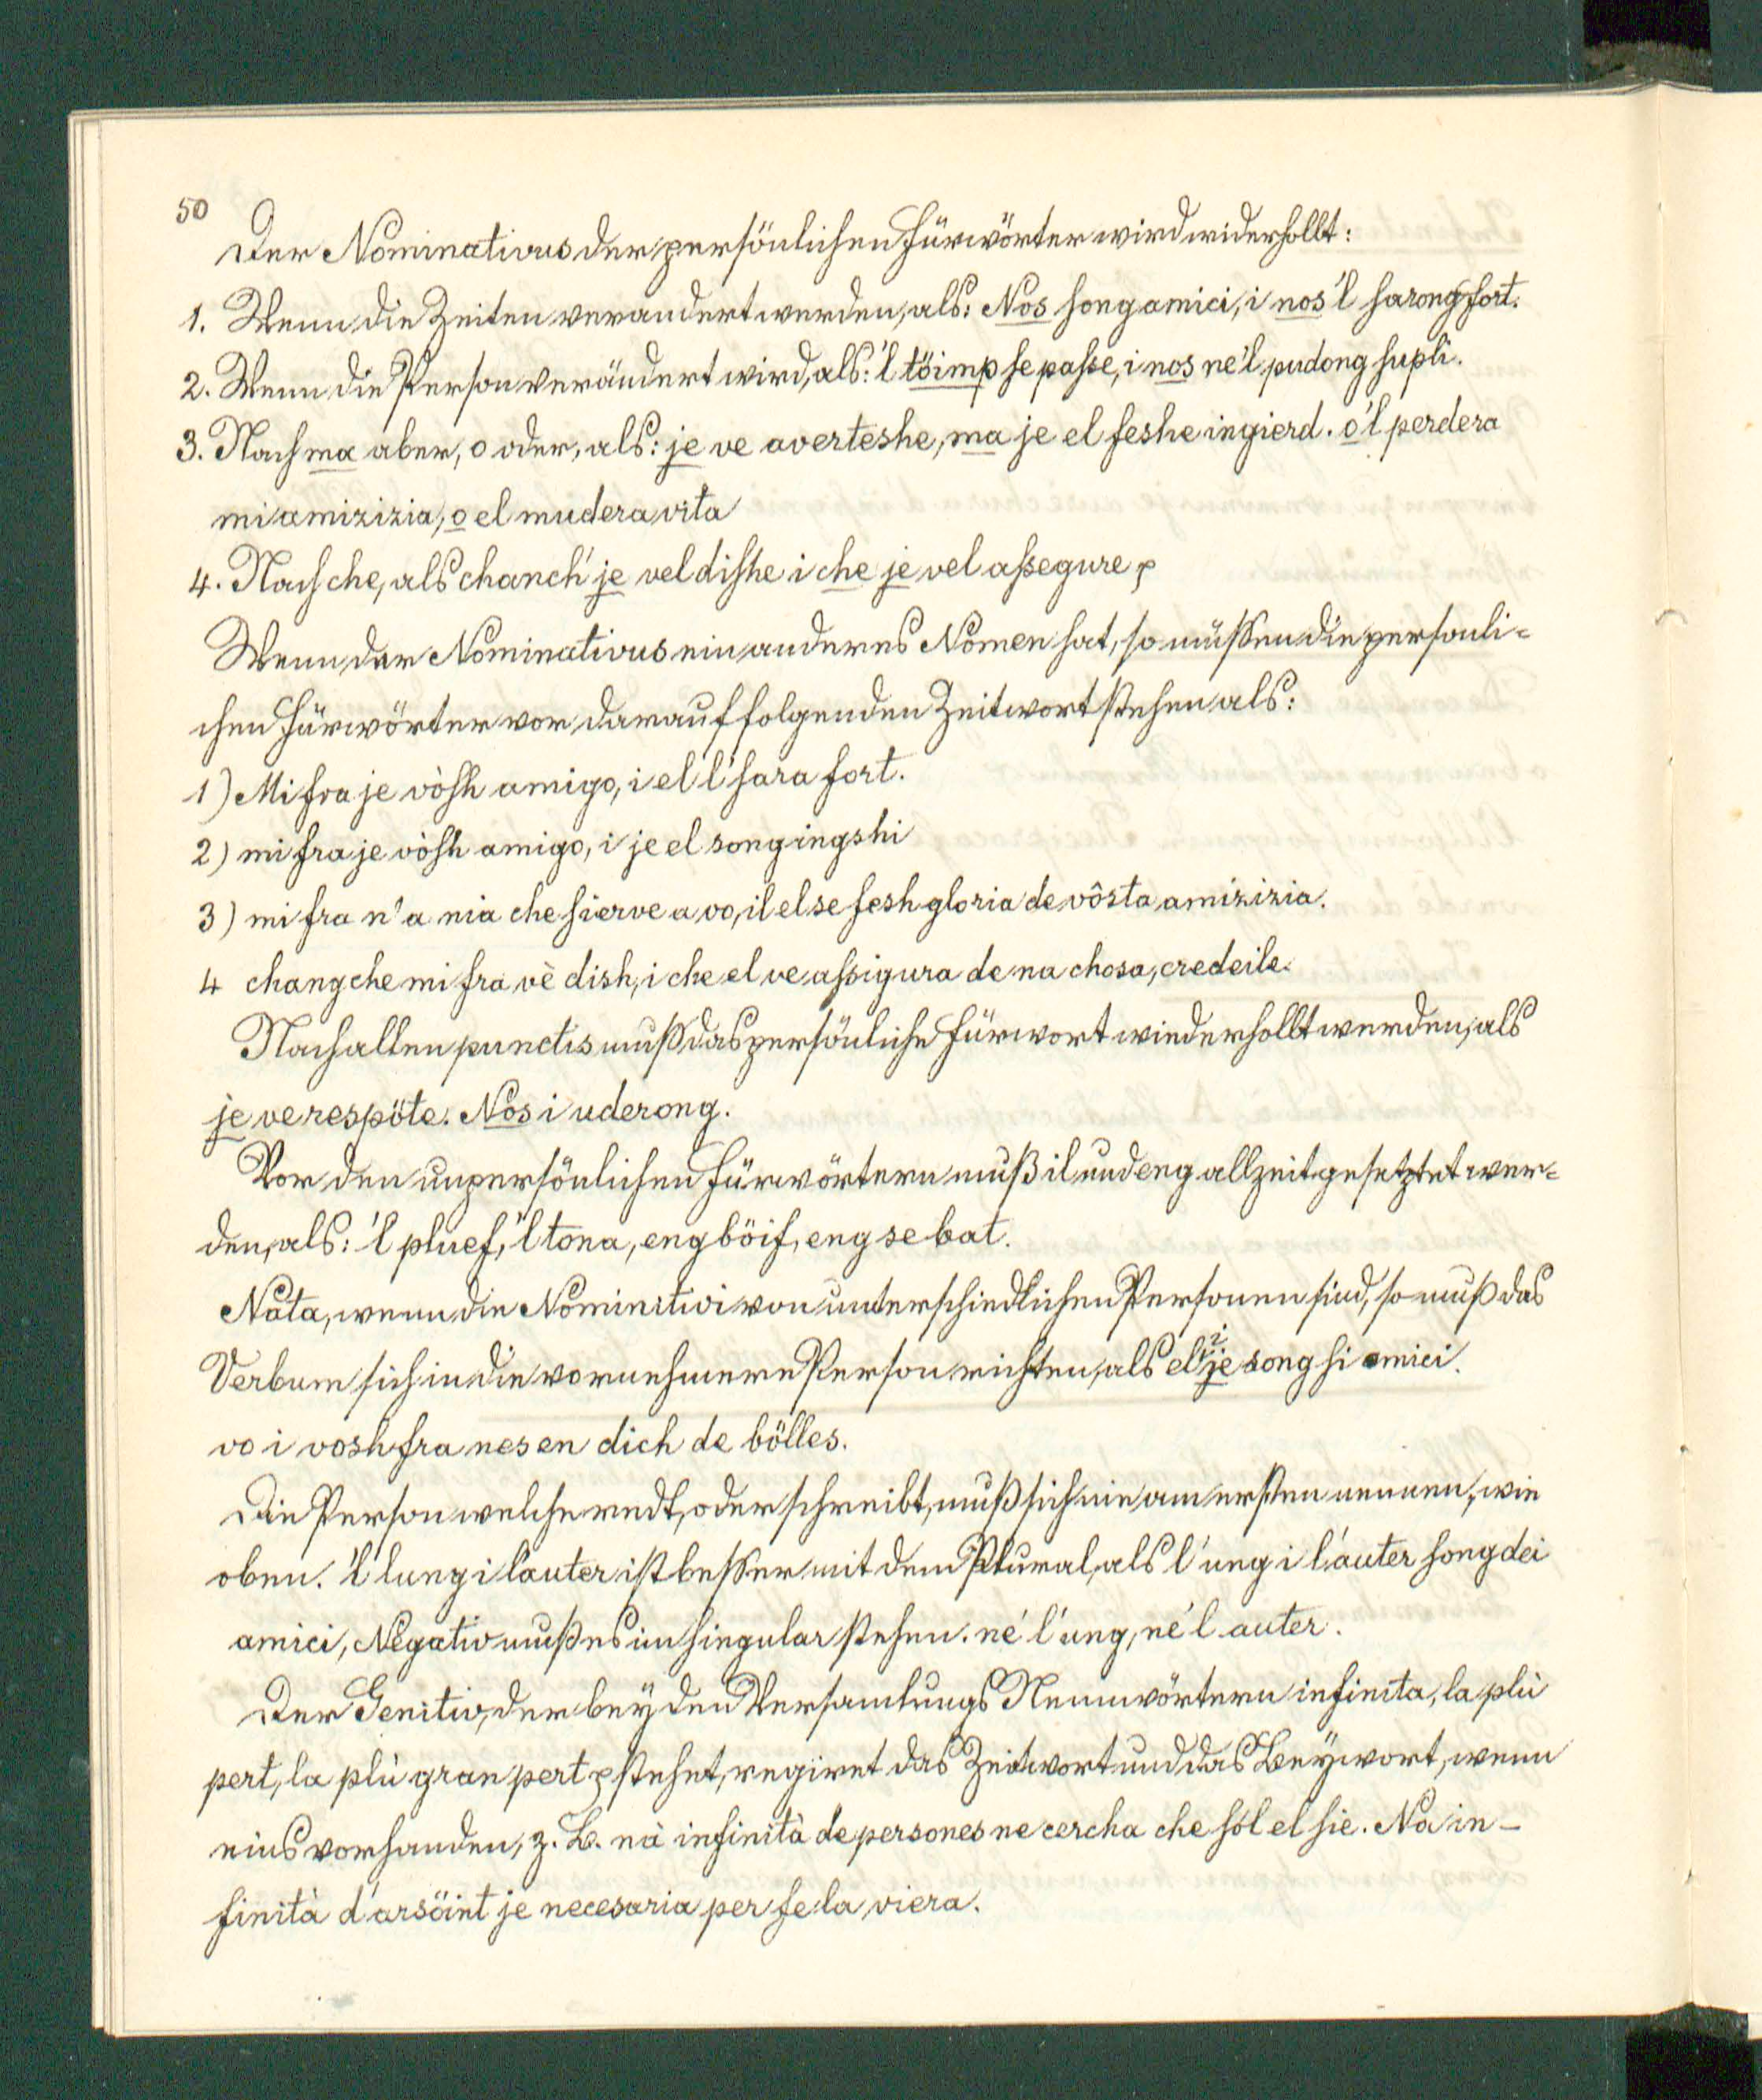 50
Der Nominativus der persönlichen Fürwörter wird widerhollt:
1. Wenn die Zeiten verandert werden, als: Nos song amici, i nos 'l sarong fort.
2. Wenn die Person verändert wird, als: 'l töimp se passe, i nos ne 'l pudong supli.
3. Nach ma aber, o oder, als: je ve averteshe, ma je el feshe ingierd. o 'l perdera
mi amizizia, o el mudera vita
4. Nach che, als chanch' je vel dishe i che je vel assegure p
Wenn der Nominativus ein anderes Nomen hat, so müssen die personli-
chen Fürwörter vor darauf folgenden Zeitwort stehen als:
1) Mi fra je vòsh amigo, i el l' sara fort.
2) mi fra je vòsh amigo, i je el song ingshi
3) mi fra n' a nia che sierve a vo, il el se fesh gloria de vôsta amizizia.
4 chang che mi fra vè dish, i che el ve assigura de na chosa, credeile.
Nach allen punctis muss das persönliche Fürwort wiederhollt werden, als
je ve respöte. Nos i uderong.
Vor den unpersönlichen Fürwörtern muß il und eng allzeit gesetztet wer-
den, als: 'l pluef, 'l tona, eng böif, eng se bat.
Nata, wenn die Nominitivi von unterschiedlichen Personen sind, so muß das
Verbum sich in die vornehmere Person richten, als el i je song si amici.
vo i vosh fra nes en dich de bölles.
Die Person welche redt, oder schreibt, muß sich nie am ersten nennen, wie
oben. 'l lung i l'auter ist besser mit dem Plural, als l' ung i l'auter song dei
amici, Negativ muß es im singular stehen. né l' ung, né l auter.
Der Genitiv, der bey den Versamlungs Nennwörtern infinita, la plu
pert, la plù gran pert p stehet, regiret das Zeitwort und das Beywort, wenn
eins vorhanden, z. B. nà infinità de persones ne cercha che sól el sie. Na in-
finità d'arsöint je necesaria per fe la viera.